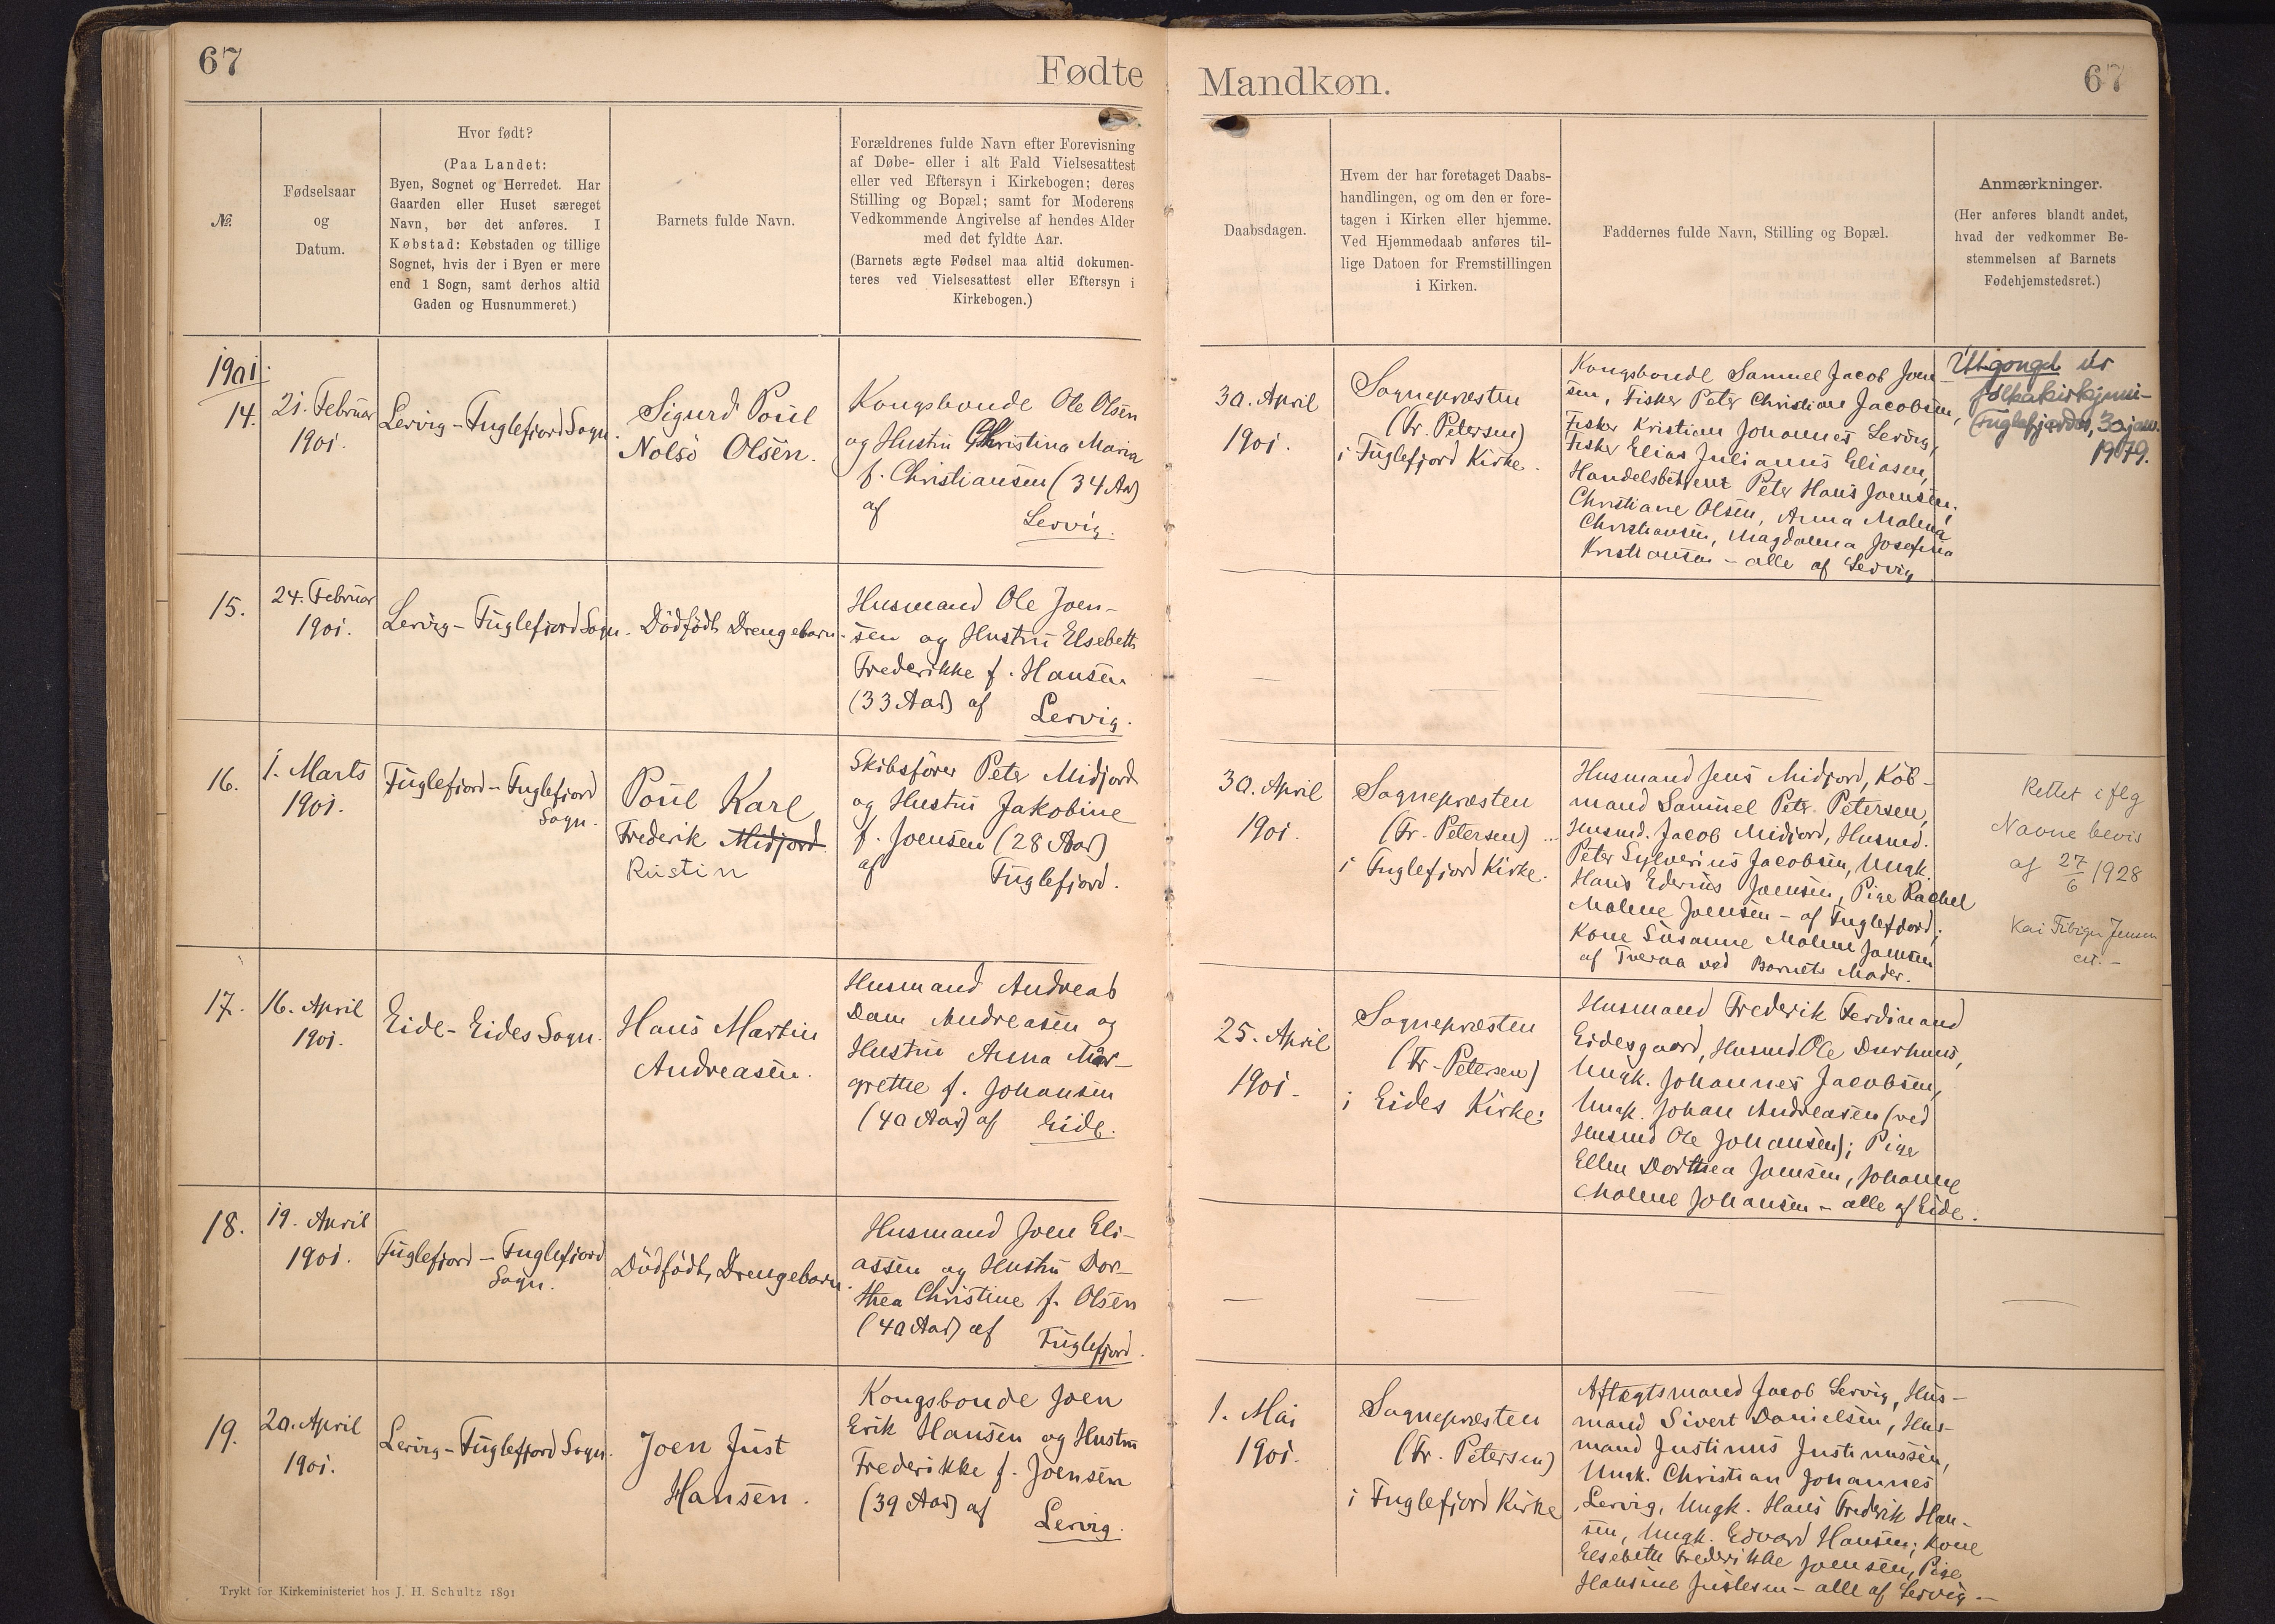 67
Fødte
Mandkøn.
67
№.
Fødselsaar
og
Datum.
Hvor født?
(Paa Landet:
Byen, Sognet og Herredet. Har
Gaarden eller Huset særeget
Navn, bør det anføres. I
Købstad: Købstaden og tillige
Sognet, hvis der i Byen er mere
end 1 Sogn, samt derhos altid
Gaden og Husnummeret.)
Barnets fulde Navn.
Forældrenes fulde Navn efter Forevisning
af Døbe- eller i alt Fald Vielsesattest
eller ved Eftersyn i Kirkebogen; deres
Stilling og Bopæl; samt for Moderens
Vedkommende Angivelse af hendes Alder
med det fyldte Aar.
(Barnets ægte Fødsel maa altid dokumen-
teres ved Vielsesattest eller Eftersyn i
Kirkebogen.)
Daabsdagen.
Hvem der har foretaget Daabs-
handlingen, og om den er fore-
tagen i Kirken eller hjemme.
Ved Hjemmedaab anføres til-
lige Datoen for Fremstillingen
i Kirken.
Faddernes fulde Navn, Stilling og Bopæl.
Anmærkninger.
(Her anføres blandt andet,
hvad der vedkommer Be-
stemmelsen af Barnets
Fødehjemstedsret.)
1901.
14.
21. Februar
1901.
Lervig - Fuglefjord Sogn.
Sigurd Poul
Nolsö Olsen.
Kongsbonde Ole Olsen
og Hustru Christina Maria
f. Christiansen (34 Aar)
af
Lervig.
30. April
1901.
Sognepræsten
(Fr. Petersen)
i Fuglefjord Kirke.
Kongsbonde Samuel Jacob Joen-
sen, Fisker Peter Christian Jacobsen,
Fisker Kristian Johannes Lervig,
Fisker Elias Julianus Eliasen,
Handelsbetjent Peter Hans Joensen,
Christiane Olsen, Anna Malena
Christiansen, Magdalena Josefina
Kristiansen - alle af Lervig
Uttgongd úr
fólkakirkjuni-
Fuglefjørdur, 30 jan.
1979.
15.
24. Februar
1901.
Lervig - Fuglefjord Sogn.
Dödfödt Drengebarn.
Husmand Ole Joen-
sen og Hustru Elsebeth
Frederikke f. Hansen
(33 Aar) af
Lervig.
16.
1. Marts
1901.
Fuglefjord - Fuglefjord
Sogn.
Poul Karl
Frederik Midjord
Rustin
Skibsförer Peter Midjord
og Hustru Jakobine
f. Joensen (28 Aar)
af
Fuglefjord.
30. April
1901.
Sognepræsten
(Fr. Petersen)
i Fuglefjord Kirke.
Husmand Jens Midjord, Köb-
mand Samuel Petr. Petersen,
Husmd. Jacob Midjord, Husmd.
Peter Sylverius Jacobsen, Ungk.
Hans Ederius Joensen, Pige Rachel
Malene Joensen - af Fuglefjord;
Kone Susanne Malene Joensen
af Tveraa ved Barnets Moder.
Rettet i flg
Navne bevis
af 27/6 1928
Kai Fibiger Jensen
cst. -
17.
16. April
1901.
Eide - Eides Sogn.
Hans Martin
Andreasen.
Husmand Andreas
Dam Andreasen og
Hustru Anna Mar-
grethe f. Johansen
(40 Aar) af Eide.
25. April
1901.
Sognepræsten
(Fr. Petersen)
i Eides Kirke.
Husmand Frederik Ferdinand
Eidesgaard, Husmd. Ole Durhuus,
Ungk. Johannes Jacobsen,
Ungk. Johan Andreasen (ved
Husmd Ole Johansen); Pige
Ellen Dorthea Joensen, Johanne
Malene Johansen - alle af Eide.
18.
19. April
1901.
Fuglefjord - Fuglefjord
Sogn.
Dödfödt Drengebarn.
Husmand Joen Eli-
assen og Hustru Dor-
thea Christine f. Olsen
(40 Aar) af
Fuglefjord.
19.
20. April
1901.
Lervig - Fuglefjord Sogn.
Joen Just
Hansen.
Kongsbonde Joen
Erik Hansen og Hustru
Frederikke f. Joensen
(39 Aar) af
Lervig.
1. Mai
1901.
Sognepræsten
(Fr. Petersen)
i Fuglefjord Kirke
Aftægtsmand Jacob Lervig, Hus-
mand Sivert Danielsen, Hus-
mand Justinus Justinussen,
Ungk. Christian Johannes
Lervig, Ungk. Hans Frederik Han-
sen, Ungk. Edvard Hansen; Kone
Elsebeth Frederikke Joensen, Pige
Hansine Justesen - alle af Lervig -
Trykt for Kirkeministeriet hos J. H. Schultz 1891